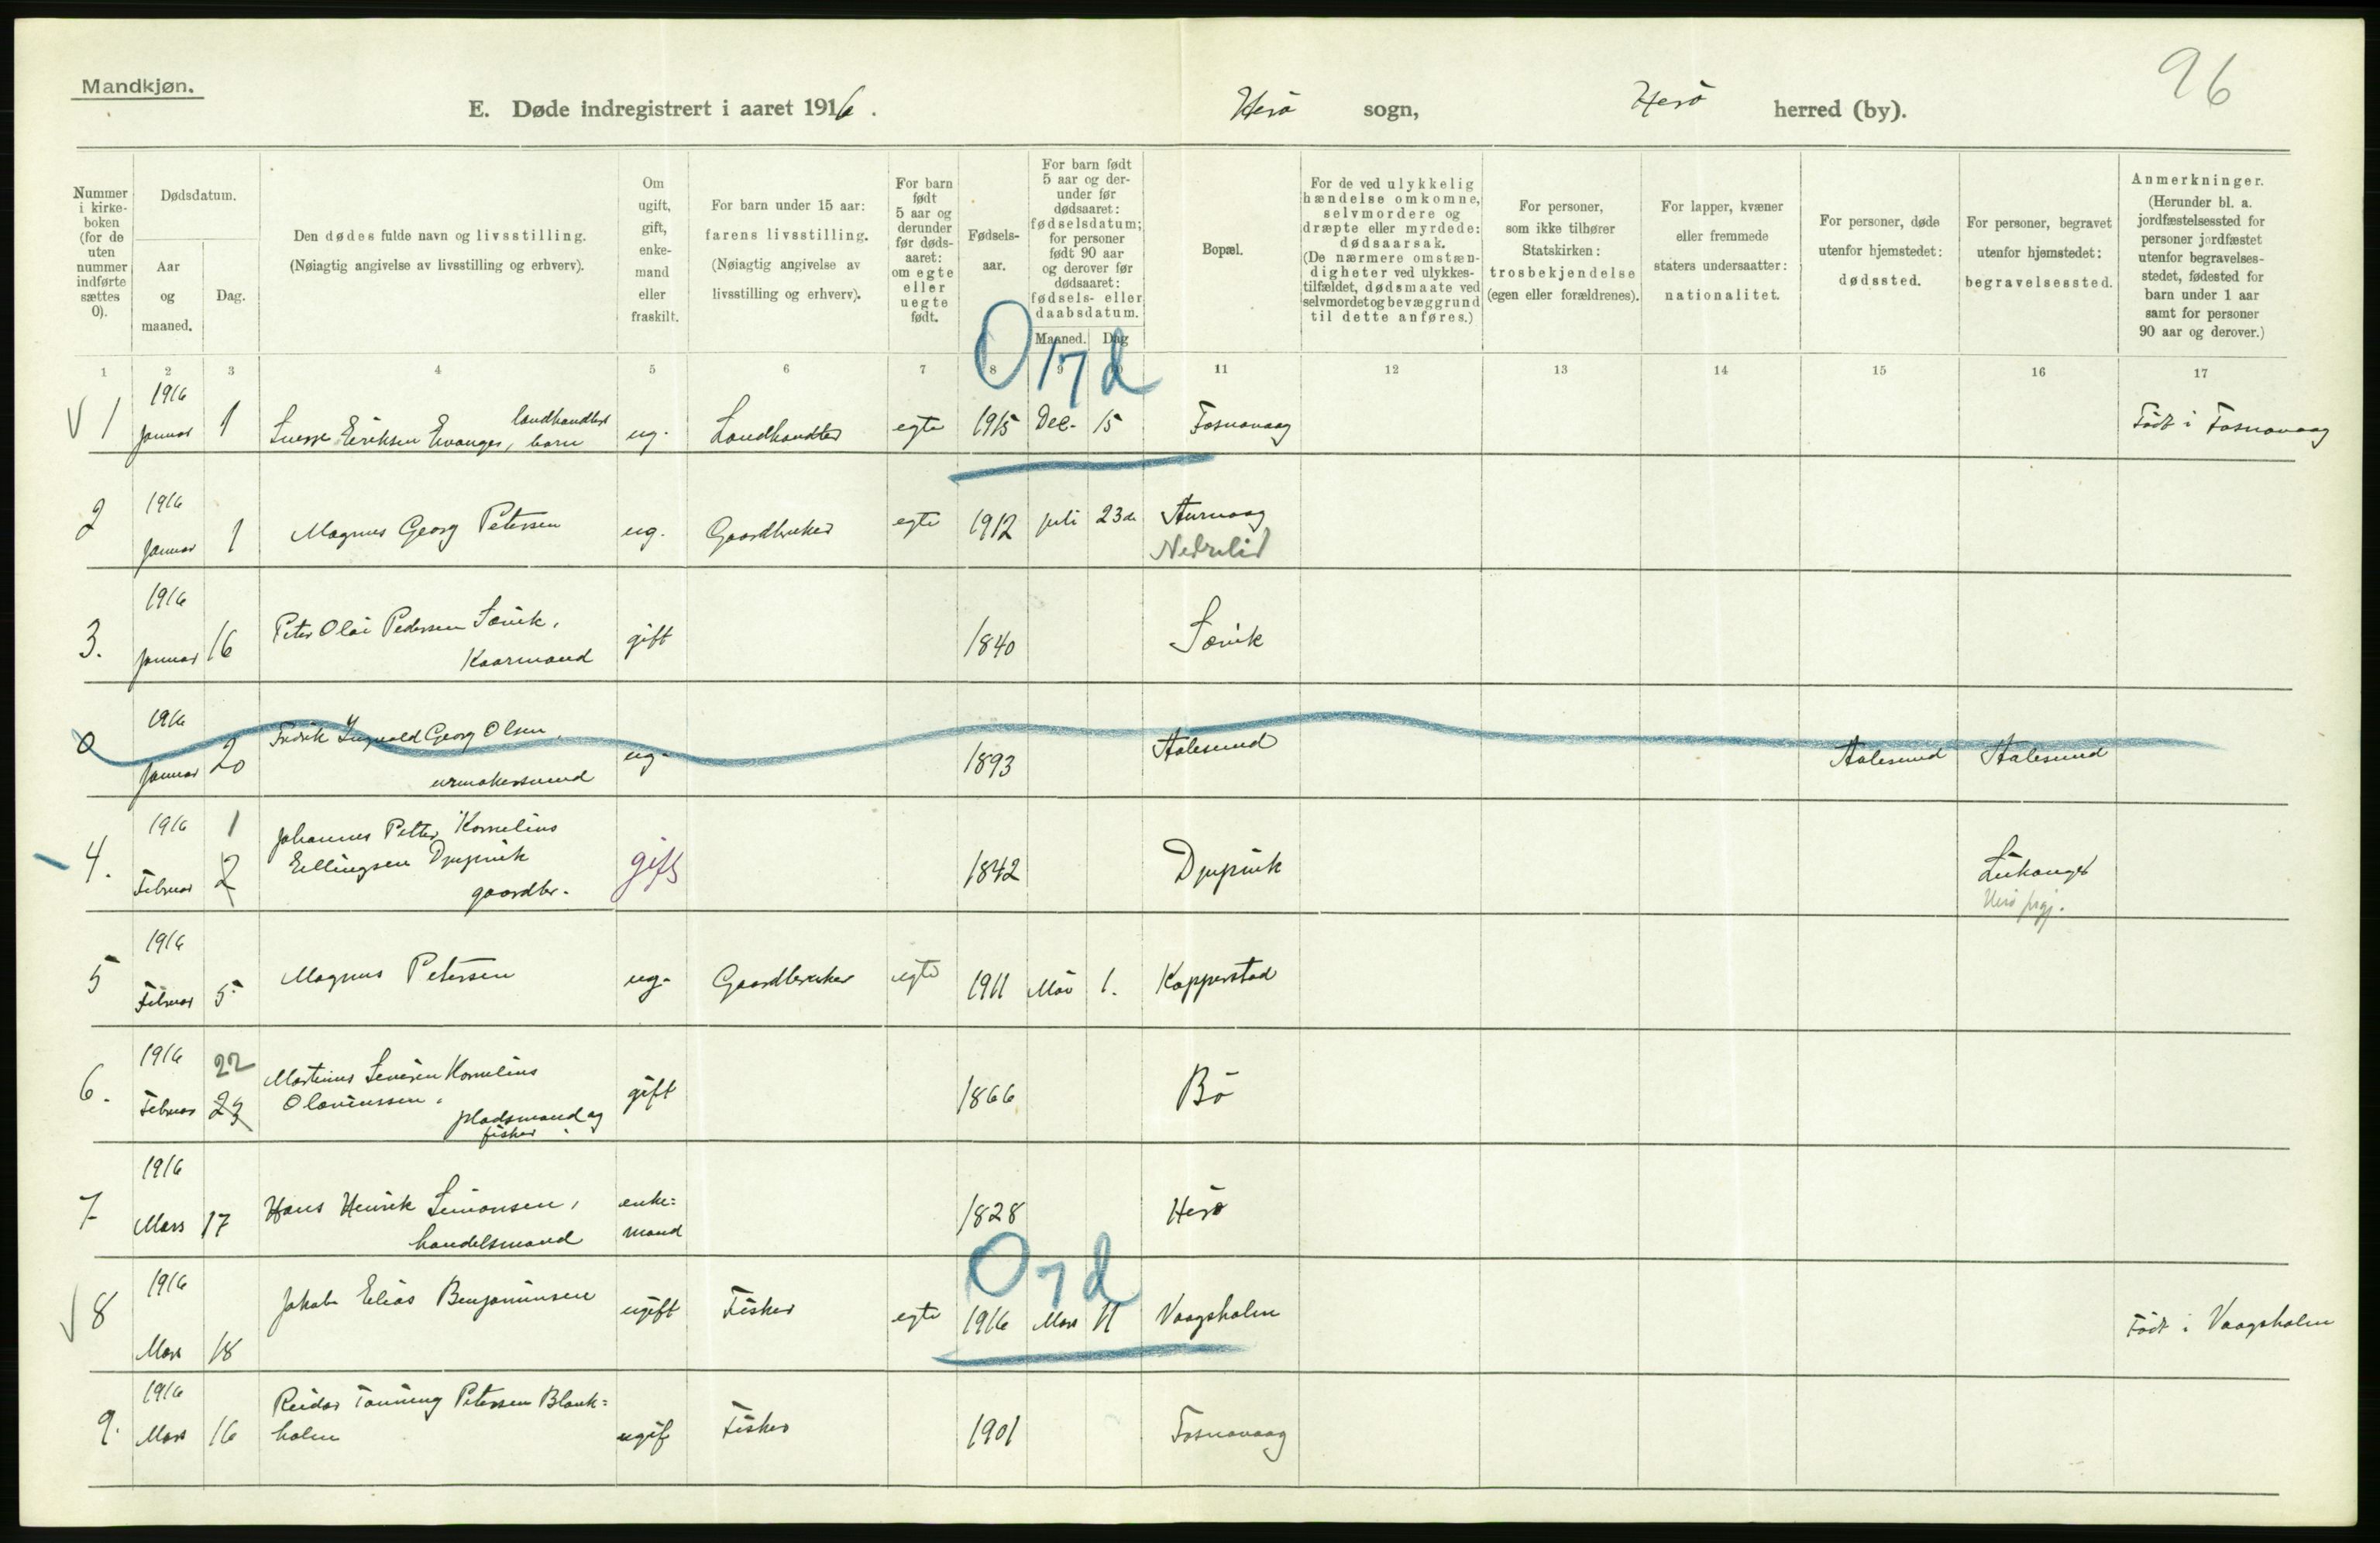 96
Mandkjøn.
E. Døde indregistrert i aaret 1916. Herö sogn, Herö herred (by).
Nummer i kirkeboken (for de uten nummer indførte sættes 0).
Dødsdatum.
Aar og maaned.
Dag.
Den dødes fulde navn og livsstilling.
(Nøiagtig angivelse av livsstilling og erhverv).
Om ugift, gift, enkemand eller fraskilt.
For barn under 15 aar: farens livsstilling.
(Nøiagtig angivelse av livsstilling og erhverv).
For barn født 5 aar og derunder før dødsaaret: om egte eller uegte født.
Fødselsaar.
For barn født 5 aar og derunder før dødsaaret: fødselsdatum; for personer født 90 aar og derover før dødsaaret: fødsels- eller daabsdatum.
Maaned. Dag
Bopæl.
For de ved ulykkelig hændelse omkomne, selvmordere og dræpte eller myrdede: dødsaarsak.
(De nærmere omstændigheter ved ulykkestilfældet, dødsmaate ved selvmordet og bevæggrund til dette anføres.)
For personer, som ikke tilhører Statskirken: trosbekjendelse (egen eller forældrenes).
For lapper, kvæner eller fremmede staters undersaatter: nationalitet.
For personer, døde utenfor hjemstedet: dødssted.
For personer, begravet utenfor hjemstedet: begravelsessted.
Anmerkninger.
(Herunder bl. a. jordfæstelsessted for personer jordfæstet utenfor begravelsesstedet, fødested for barn under 1 aar samt for personer 90 aar og derover.)
1 2 3 4 5 6 7 8 9 10 11 12 13 14 15 16 17
0 17 d
1 1916 Januar 1 Sverre Eriksen Evanger, landhandlers barn ug. Landhandler egte 1915 Dec. 15 Fosnavaag Födt i Fosnavaag
2 1916 Januar 1 Magnus Georg Petersen ug. Gaardbruker egte 1912 juli 23de Aurvaag
Nedrelid
3. 1916 Januar 16 Peter Olai Pedersen Sævik,
Kaarmand gift 1840 Sævik
0 1916 Januar 20 Fredrik Ingvald Georg Olsen,
urmakersvend ug. 1893 Aalesund Aalesund Aalesund
4. 1916 Februar 2 1 Johannes Petter Kornelius
Ellingsen Djupvik
gaardbr. gift 1842 Djupvik Leikanger
Herö prgj.
5 1916 Februar 5 Magnus Petersen ug. Gaardbruker egte 1911 Mai 1. Kopperstad
6. 1916 Februar 23 22 Martinus Severin Kornelius
Olavinussen,
pladsmand og
fisker. gift 1866 Bö
7 1916 Mars 17 Hans Henrik Simonsen,
handelsmand enkemand 1828 Herö
0 7 d
8 1916 Mars 18 Jakob Elias Benjaminsen ugift Fisker egte 1916 Mars 11 Vaagsholm Födt i Vaagsholm
9. 1916 Mars 16 Reidar Petersen Blank=
holm ugift Fisker 1901 Fosnavaag